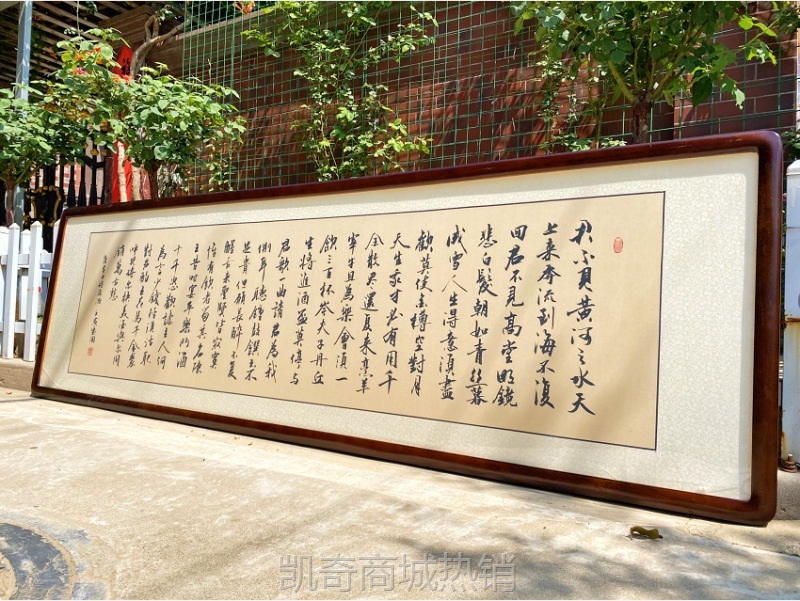 君不見黄河之水天
上来奔流到海不復
回君不見高堂明鏡
悲白髮朝如青丝暮
成雪人生得意須盡
歡莫使金樽空對月
天生我才必有用千
金散尽還复来烹羊
宰牛且為樂會須一
飲三百杯岑夫子丹丘
生將進酒盃莫停與
君歌一曲請君為我
側耳聽鐘鼓饌玉不
足貴但願長醉不复
醒古来聖賢皆寂寞
惟有飲者留其名陳
王昔時宴平樂斗酒
十千恣歡謔主人何
為言少錢径須沽取
對君酌五花馬千金裘
呼兒将出换美酒與尔同
銷萬古愁
凯奇商城热销